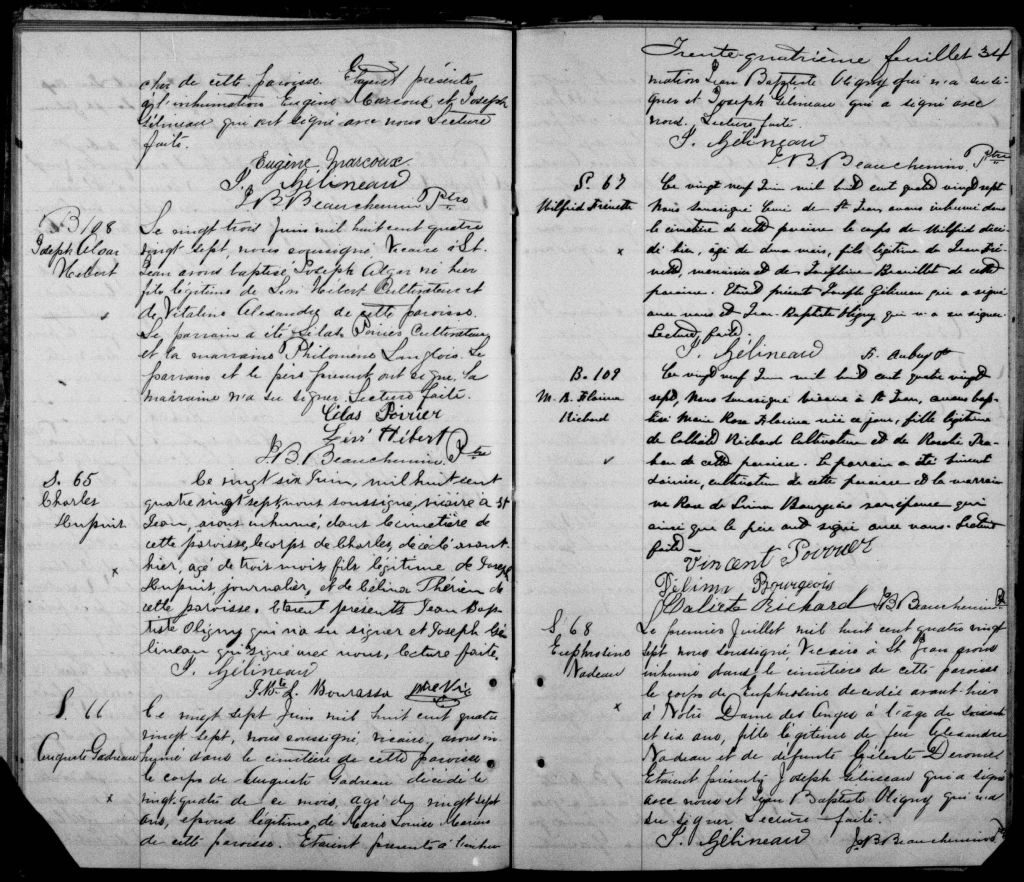 cher de cette paroisse. Etaient présents
à l'inhumation Eugène Marcoux et Joseph
Gélineau qui ont signé avec nous Lecture
faite.
Eugène Marcoux
J. Gélineau
J. B. Beauchemin Ptre
B 108
Joseph Algar
Hébert
Le vingt trois Juin mil huit cent quatre
vingt sept, nous soussigné, Vicaire à St
Jean avons baptisé Joseph Algar né hier
fils légitime de Lévi Hébert Cultivateur et
de Vitaline Alexandre de cette paroisse.
Le parrain a été Silas Poirier Cultivateur
et la marraine Philomène Langlois. Le
parrain et le père présent ont signé. La
marraine n'a su signer. Lecture faite.
Cilas Poirier
Hébert
J. B. Beauchemin Ptre
S. 65
Charles
Hupuit
Ce vingt six Juin, mil huit cent
quatre vingt sept, nous soussigné, vicaire à St
Jean, avons inhumé, dans le cimetière de
cette paroisse, le corps de Charles, décédé avant-
hier, agé de trois mois fils légitime de Joseph
Hupuit, journalier, et de Célina Thérien de
cette paroisse. Etaient présents Jean Bap
tiste Oligny qui n'a su signer et Joseph Gé
lineau qui signé avec nous, lecture faite.
J. Gélineau
L. Bourassa ptre Vic
S. 66
Auguste Gadreau
x
Ce vingt sept Juin mil huit cent quatre
vingt sept, nous soussigné, vicaire, avons in
humé dans le cimetière de cette paroisse
le corps de Auguste Gadreau décédé le
vingt-quatre de ce mois, agé de vingt sept
ans, époux légitime de Marie Louise
de cette paroisse. Etaient présents à l'inhu
Trente-quatrième feuillet 34
mation Jean Baptiste Oligny qui n'a su si-
gner et Joseph Gélineau qui a signé avec
nous. Lecture faite.
J. Gélineau
J. B. Beauchemin Ptre
S. 67
Wilfrid Frénette
x
Ce vingt neuf Juin mil huit cent quatre vingt sept
Nous soussigné Curé de St Jean, avons inhumé dans
le cimetière de cette paroisse le corps de Wilfrid décé-
dé hier, âgé de deux mois, fils légitime de Jean Fré-
nette, menuisier et de Joséphine de cette
paroisse. Etaient présents Joseph Gélineau qui a signé
avec nous et Jean-Baptiste Oligny qui n'a su signer
Lecture faite.
J. Gélineau F. Aubry Ptre
B. 109
M. R. Florina
Richard
Ce vingt neuf Juin mil huit cent quatre vingt
sept, Nous soussigné Vicaire à St Jean, avons bap-
tisé Marie Rose Florina née ce jour, fille légitime
de Richard Cultivateur et de Rosalie Tra-
han de cette paroisse. Le parrain a été Vincent
Poirier, cultivateur de cette paroisse et la marrai
ne Rose de Lima Bourgeois son épouse qui
ainsi que le père ont signé avec nous. Lecture
faite
Vincent Poirier
Délima Bourgeois
Richard J. B. Beauchemin Ptre
S. 68
Euphrosine
Nadeau
x
Le premier Juillet mil huit cent quatre vingt
sept nous soussigné, Vicaire à St Jean avons
inhumé dans le cimetière de cette paroisse
le corps de Euphrosine décédée avant-hier
à Notre Dame des Anges à l'âge de soixante
et six ans, fille légitime de feu Alexandre
Nadeau et de défunte Céleste
Etaient présents Joseph Gélineau qui a signé
avec nous et Jean Baptiste Oligny qui n'a
su signer Lecture faite.
J. Gélineau J. B. Beauchemin Ptre